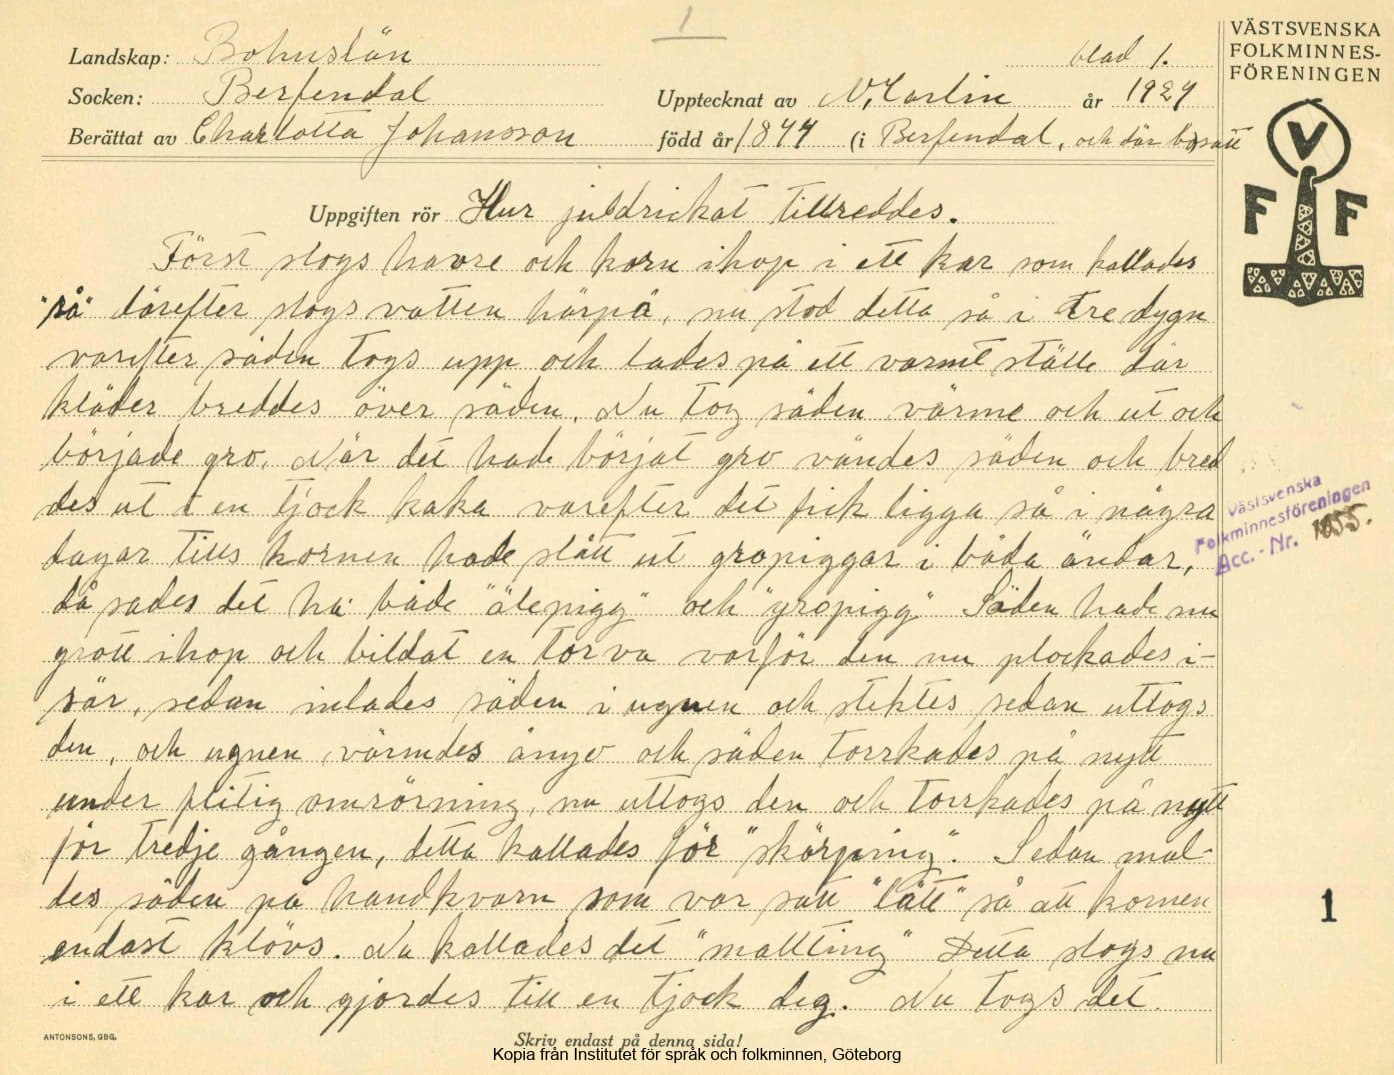 1
Landskap: Bohuslän blad 1.
Socken: Berfendal Upptecknat av N. Carlin år 1927
Berättat av Charlotta Johansson född år 1844 (i Berfendal, och där bosatt
Uppgiften rör Hur juldrickat tillreddes.
Först slogs havre och korn ihop i ett kar som kallades
"så" därefter slogs vatten härpå, nu stod detta så i tre dygn
varefter säden togs upp och lades på ett varmt ställe där
kläder breddes över säden. Nu tog säden värme och ut och
började gro. När det hade börjat gro vändes säden och bred
des ut i en tjock kaka varefter det fick ligga så i några
dagar tills kornen hade slått ut gropiggar i båda ändar,
då sades det ha både "ålepigg" och "gropigg" Säden hade nu
grott ihop och bildat en torva varför den nu plockades i-
sär, sedan inlades säden i ugnen och stektes sedan uttogs
den, och ugnen värmdes ånyo och säden torrkades på nytt
under flitig omrörning, nu uttogs den och torrkades på nytt
för tredje gången, detta kallades för "skärpning". Sedan mal-
des säden på handkvarn som var satt "lätt" så att kornen
endast klövs. Nu kallades det "mallting" Detta slogs nu
i ett kar och gjordes till en tjock deg. Nu togs det
ANTONSONS, GBG.
Skriv endast på denna sida!
Kopia från Institutet för språk och folkminnen, Göteborg
VÄSTSVENSKA
FOLKMINNES-
FÖRENINGEN
V
F F
Västsvenska
Folkminnesföreningen
Acc.-Nr. 1055.
1